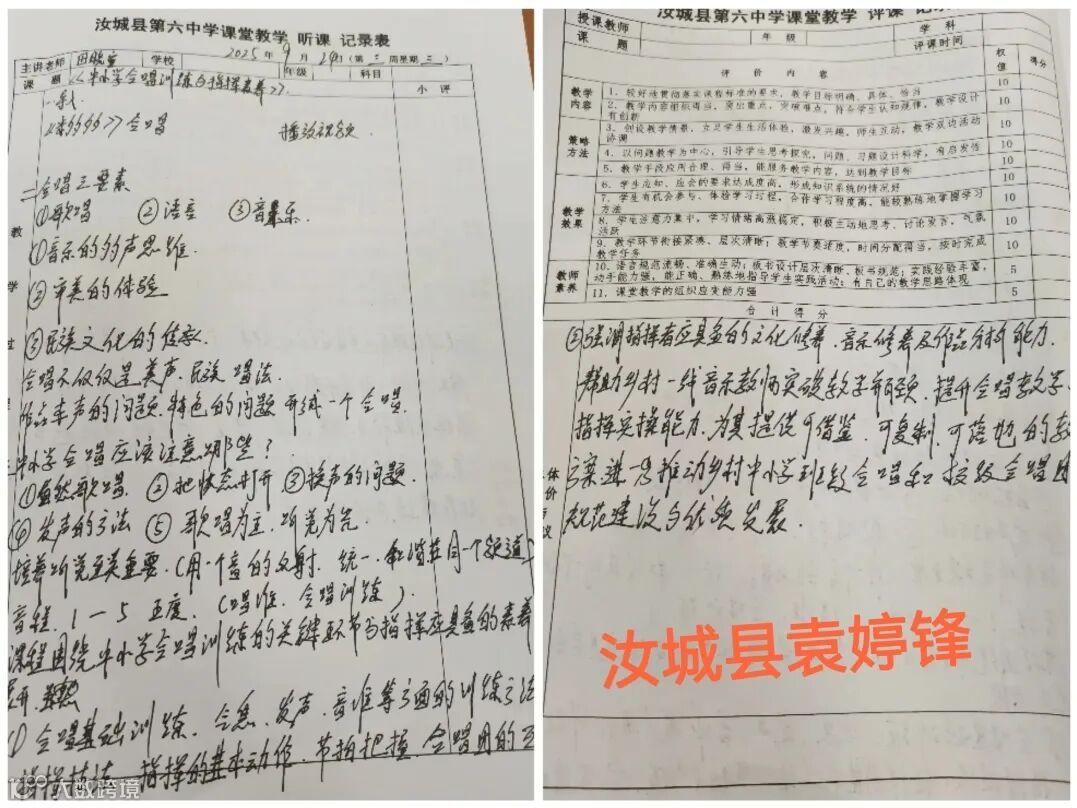 汝城县第六中学课堂教学 听课 记录表
2025年9月24日(第 周星期三)
主讲老师 学校
课题 《中小学合唱训练与指挥素养》 年级 科目
小评
教学过程
合唱
播放视频
二、合唱三要素
①歌唱 ②语言 ③音乐.
①音乐的多声思维.
②审美的体验
③民族文化的传承
合唱不仅仅是美声.民族唱法.
的问题.特色的问题 一个合唱.
中小学合唱应该注意哪些?
①自然歌唱. ②把状态打开 ③换声的问题.
④发声的方法 ⑤歌唱为主.听觉为先.
培养听觉至关重要.(用一个音的 . 统一.和谐在同一个频道)
音程. 1—5 五度. (唱准. 合唱训练).
课程围绕中小学合唱训练的关键环节与指挥应具备的素养
展开.
① 合唱基础训练. 气息. 发声. 音准等方面的训练方法
指挥技法. 指挥的基本动作. 节拍把握. 合唱团的
大数跨境
汝城县第六中学课堂教学 评课 记录
授课教师 年级 学科
课题 评课时间
评价内容 权值 得分
教学内容
1、较好地贯彻落实课程标准的要求,教学目标明确、具体、恰当 10
2、教学内容组织得当,突出重点,突破难点,符合学生认知规律,教学设计有创新 10
策略方法
3、创设教学情景,立足学生生活体验,激发兴趣,师生互动,教学双边活动协调 10
4、以问题教学为中心,引导学生思考探究,问题、习题设计科学,有启发性 10
5、教学手段应用合理、得当,能服务教学内容,达到教学目标 10
教学效果
6、学生应知、应会的要求达成度高,形成知识系统的情况好 10
7、学生有机会参与、体验学习过程,合作学习程度高,能较熟练地掌握学习方法 10
8、学生注意力集中,学习情绪高涨稳定,积极主动地思考、讨论发言,气氛活跃 10
9、教学环节衔接紧凑、层次清晰;教学节奏适度,时间分配得当,按时完成教学任务 10
教师素养
10、语言规范流畅、准确生动;板书设计层次清晰、板书规范;实践经验丰富,动手能力强,能正确、熟练地指导学生实践活动;有自己的教学思路体现 5
11、课堂教学的组织应变能力强 5
合计得分
②强调指挥者应具备的文化修养.音乐修养及作品分析能力.
帮助乡村一线音乐教师突破教学瓶颈.提升合唱教学
指挥实操能力.为其提供可借鉴.可复制.可落地的教
方案进一步推动乡村中小学班级合唱和校级合唱团
规范建设与优质发展.
汝城县袁婷锋